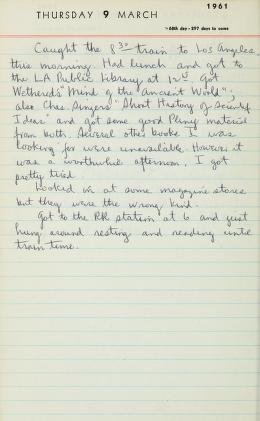 1961
THURSDAY 9 MARCH
68th day - 297 days to come
Caught the 8 30 train to Los Angeles
this morning. Had lunch and got to
the LA Public Library at 12 15. Got
Wethered's "Mind of the Ancient World";
also Chas. Singer's "Short History of Scientif
Ideas" and got some good Pliny material
from both. Several other books I was
looking for were unavailable. However it
was a worthwhile afternoon. I got
pretty tired.
Looked in at some magazine stores
but they were the wrong kind.
Got to the RR station at 6 and just
hung around resting and reading until
train time.